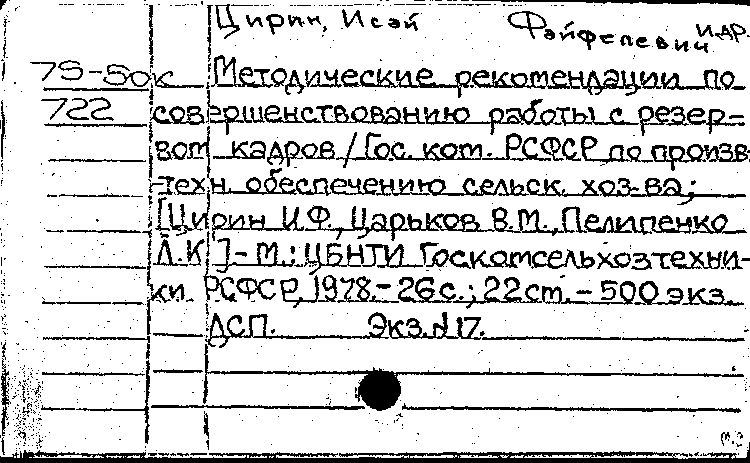 Цирин, Исай Файфелевич и др.
75-50к Методические рекомендации по
722 совершенствованию работы с резер-
вом кадров / Гос. ком. РСФСР по произв.-
техн. обеспечению сельск. хоз-ва;
[Цирин И.Ф., Царьков В.М., Пелипенко
Л.К.]-М.: ЦБНТИ Госкомсельхозтехни-
ки РСФСР, 1978.-26с.; 22см.-500 экз.
ДСП. Экз. №17.